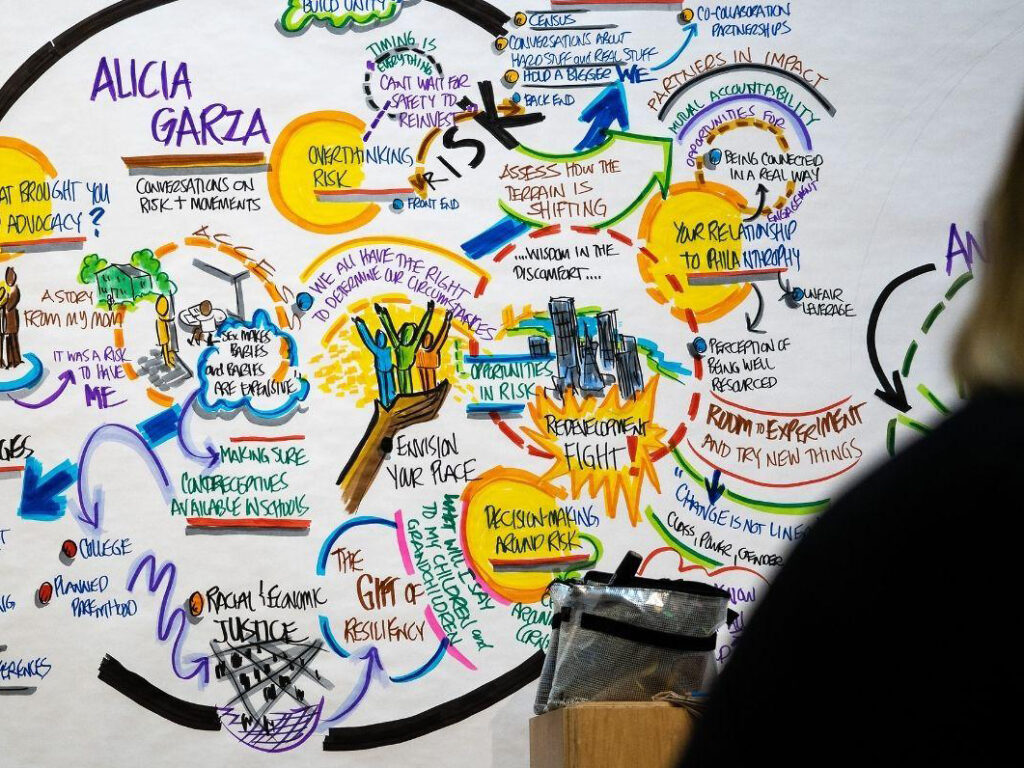 BUILD UNITY
TIMING IS
EVERYTHING
CAN'T WAIT FOR
SAFETY TO
REINVEST
CENSUS
CONVERSATIONS ABOUT
HARD STUFF and REAL STUFF
HOLD A BIGGER WE
BACK END
CO-COLLABORATION
PARTNERSHIPS
PARTNERS IN IMPACT
MUTUAL ACCOUNTABILITY
OPPORTUNITIES FOR
ENGAGEMENT
BEING CONNECTED
IN A REAL WAY
ALICIA
GARZA
CONVERSATIONS ON
RISK + MOVEMENTS
OVERTHINKING
RISK
FRONT END
RISK
ASSESS HOW THE
TERRAIN IS
SHIFTING
...WISDOM IN THE
DISCOMFORT....
YOUR RELATIONSHIP
TO PHILANTHROPY
UNFAIR
LEVERAGE
PERCEPTION OF
BEING WELL
RESOURCED
ROOM TO EXPERIMENT
AND TRY NEW THINGS
BROUGHT YOU
ADVOCACY?
A STORY
FROM MY MOM
IT WAS A RISK
TO HAVE
ME
SEX MAKES
BABIES
and BABIES
ARE EXPENSIVE"
WE ALL HAVE THE RIGHT
TO DETERMINE OUR CIRCUMSTANCES
OPPORTUNITIES
IN RISK
REDEVELOPMENT
FIGHT!
ENVISION
YOUR PLACE
MAKING SURE
CONTRACEPTIVES
AVAILABLE IN SCHOOLS
COLLEGE
PLANNED
PARENTHOOD
RACIAL & ECONOMIC
JUSTICE
THE
GIFT OF
RESILIENCY
WHAT WILL I SAY
TO MY CHILDREN and
GRANDCHILDREN
DECISION-MAKING
AROUND RISK
AROUND
"CHANGE IS NOT
CLASS, POWER, GENDER